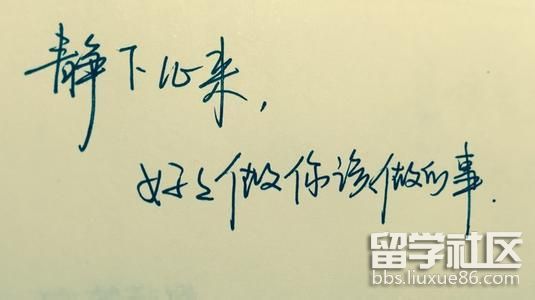 静下心来，
好好做你该做的事.
留学社区
bbs.liuxue86.com